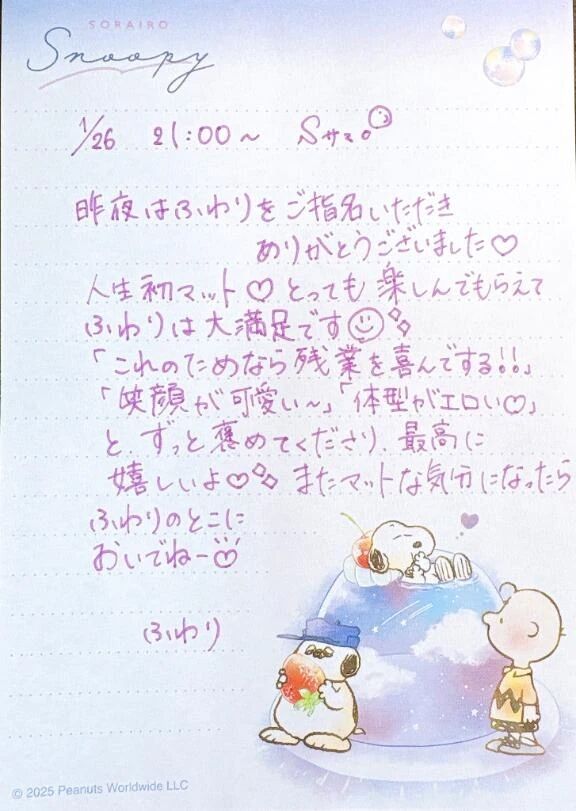 SORAIRO
Snoopy
1/26 21:00～ Sサマ。
昨夜はふわりをご指名いただき
ありがとうございました♡
人生初マット♡とっても楽しんでもらえて
ふわりは大満足です
「これのためなら残業を喜んでする!!」
「笑顔が可愛い～」「体型がエロい♡」
と、ずっと褒めてくださり、最高に
嬉しいよ♡ またマットな気分になったら
ふわりのとこに
おいでねー♡
ふわり
© 2025 Peanuts Worldwide LLC